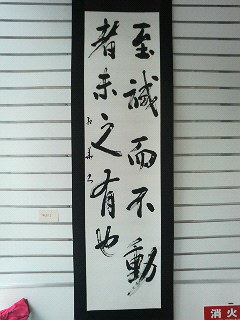 至誠而不動
者未之有也
消火